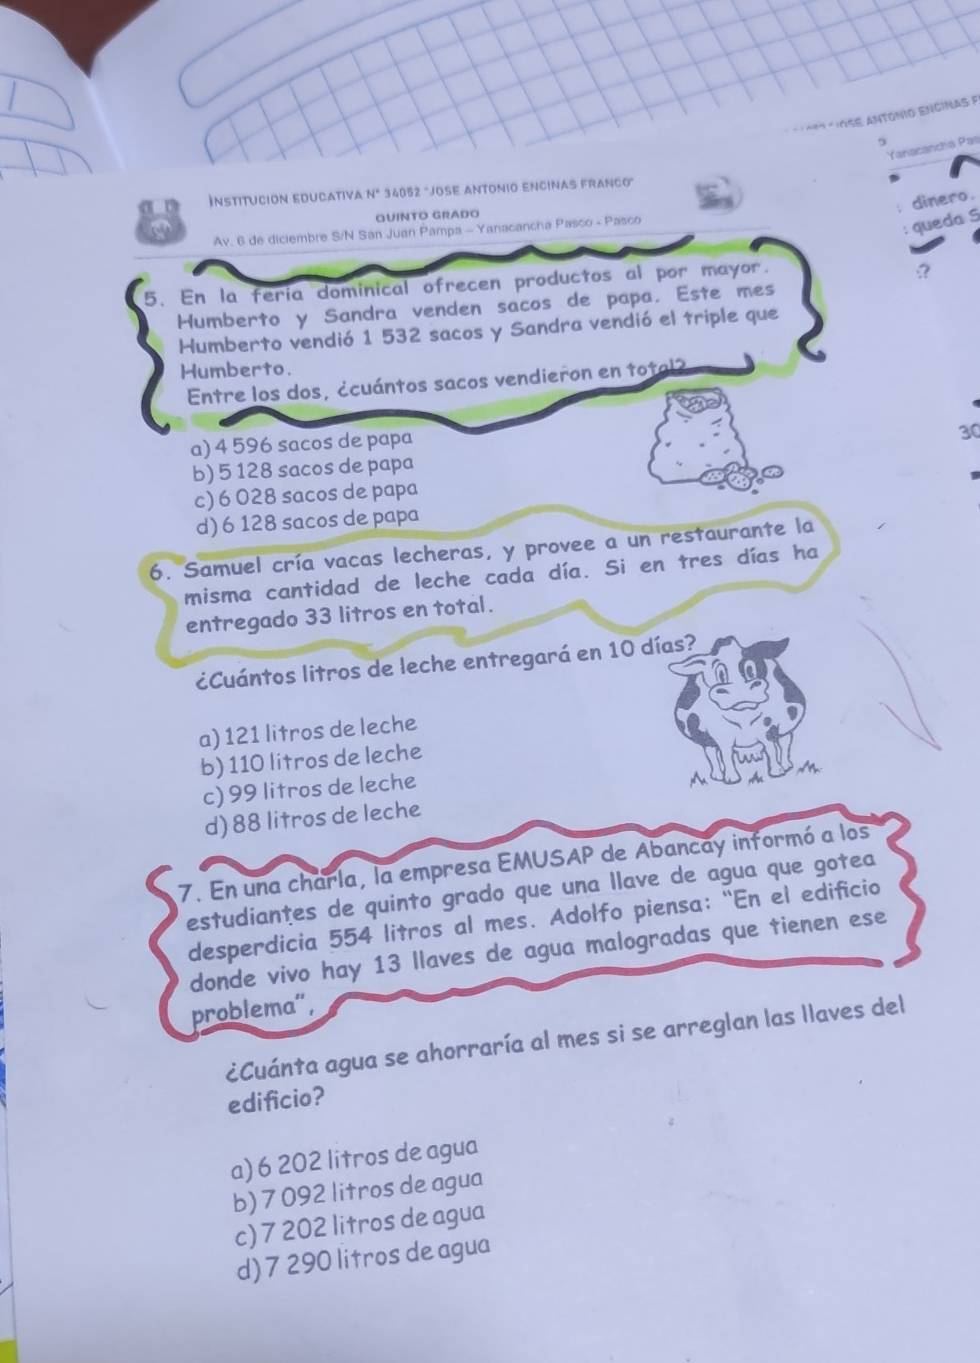 JOSE ANTONIO ENCINAS F
Yanacancha Pas
INSTITUCION EDUCATIVA N° 34052 "JOSE ANTONIO ENCINAS FRANCO"
QUINTO GRADO
Av. 6 de diciembre S/N San Juan Pampa – Yanacancha Pasco - Pasco
dinero.
queda S
:?
5. En la feria dominical ofrecen productos al por mayor.
Humberto y Sandra venden sacos de papa. Este mes
Humberto vendió 1 532 sacos y Sandra vendió el triple que
Humberto.
Entre los dos, ¿cuántos sacos vendieron en total?
30
a) 4 596 sacos de papa
b) 5 128 sacos de papa
c) 6 028 sacos de papa
d) 6 128 sacos de papa
6. Samuel cría vacas lecheras, y provee a un restaurante la
misma cantidad de leche cada día. Si en tres días ha
entregado 33 litros en total.
¿Cuántos litros de leche entregará en 10 días?
a) 121 litros de leche
b) 110 litros de leche
c) 99 litros de leche
d) 88 litros de leche
7. En una charla, la empresa EMUSAP de Abancay informó a los
estudiantes de quinto grado que una llave de agua que gotea
desperdicia 554 litros al mes. Adolfo piensa: "En el edificio
donde vivo hay 13 llaves de agua malogradas que tienen ese
problema",
¿Cuánta agua se ahorraría al mes si se arreglan las llaves del
edificio?
a) 6 202 litros de agua
b) 7 092 litros de agua
c) 7 202 litros de agua
d) 7 290 litros de agua